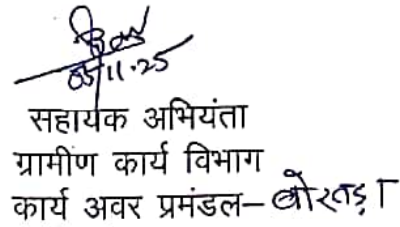 05/11.25
सहायक अभियंता
ग्रामीण कार्य विभाग
कार्य अवर प्रमंडल– बोरतड़ा